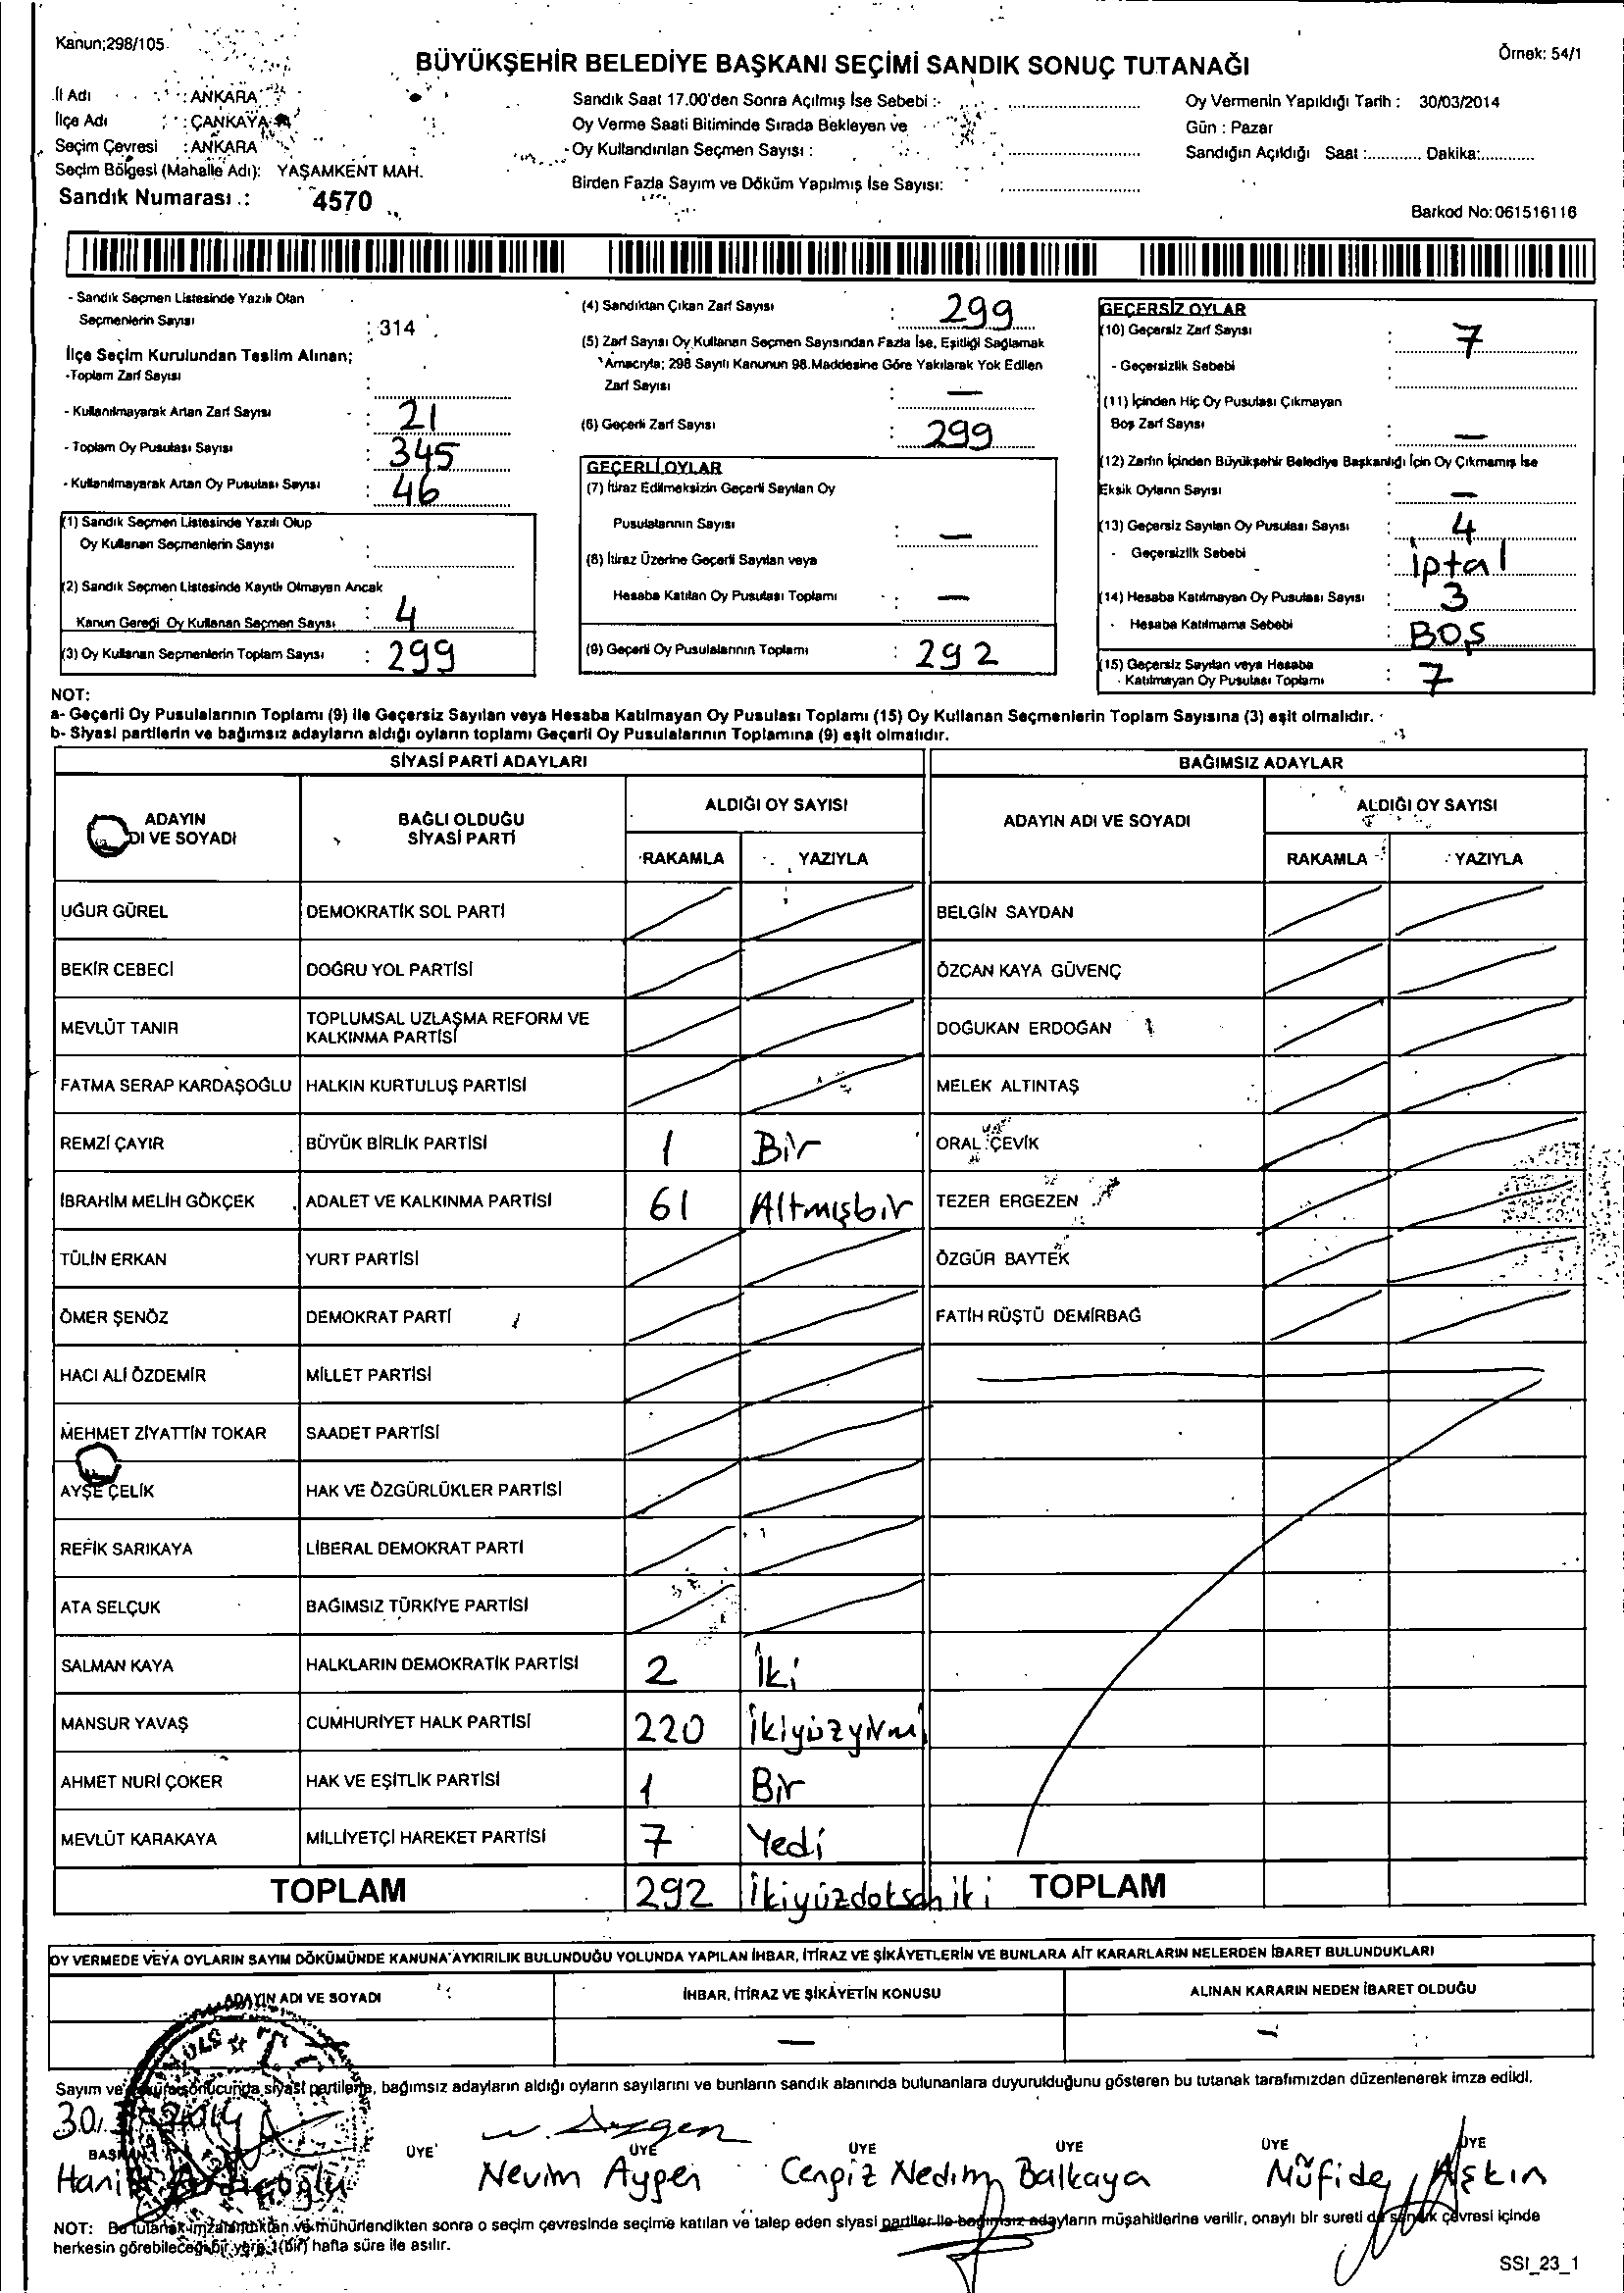 Kanun;298/105
Örnek: 54/1
BÜYÜKŞEHİR BELEDİYE BAŞKANI SEÇİMİ SANDIK SONUÇ TUTANAĞI
İl Adı : ANKARA
İlçe Adı : ÇANKAYA
Seçim Çevresi : ANKARA
Seçim Bölgesi (Mahalle Adı): YAŞAMKENT MAH.
Sandık Numarası .: 4570
Sandık Saat 17.00'den Sonra Açılmış İse Sebebi :
Oy Verme Saati Bitiminde Sırada Bekleyen ve
Oy Kullandırılan Seçmen Sayısı :
Birden Fazla Sayım ve Döküm Yapılmış İse Sayısı:
Oy Vermenin Yapıldığı Tarih : 30/03/2014
Gün : Pazar
Sandığın Açıldığı Saat :............ Dakika:............
Barkod No:061516116
- Sandık Seçmen Listesinde Yazılı Olan
Seçmenlerin Sayısı : 314
İlçe Seçim Kurulundan Teslim Alınan;
-Toplam Zarf Sayısı
- Kullanılmayarak Artan Zarf Sayısı : 21
- Toplam Oy Pusulası Sayısı : 345
- Kullanılmayarak Artan Oy Pusulası Sayısı : 46
(1) Sandık Seçmen Listesinde Yazılı Olup
Oy Kullanan Seçmenlerin Sayısı :
(2) Sandık Seçmen Listesinde Kayıtlı Olmayan Ancak
Kanun Gereği Oy Kullanan Seçmen Sayısı : 4
(3) Oy Kullanan Seçmenlerin Toplam Sayısı : 299
(4) Sandıktan Çıkan Zarf Sayısı : 299
(5) Zarf Sayısı Oy Kullanan Seçmen Sayısından Fazla İse, Eşitliği Sağlamak
Amacıyla; 298 Sayılı Kanunun 98.Maddesine Göre Yakılarak Yok Edilen
Zarf Sayısı : —
(6) Geçerli Zarf Sayısı : 299
GEÇERLİ OYLAR
(7) İtiraz Edilmeksizin Geçerli Sayılan Oy
Pusulalarının Sayısı : —
(8) İtiraz Üzerine Geçerli Sayılan veya
Hesaba Katılan Oy Pusulası Toplamı : —
(9) Geçerli Oy Pusulalarının Toplamı : 292
GEÇERSİZ OYLAR
(10) Geçersiz Zarf Sayısı : 7
- Geçersizlik Sebebi :
(11) İçinden Hiç Oy Pusulası Çıkmayan
Boş Zarf Sayısı : —
(12) Zarfın İçinden Büyükşehir Belediye Başkanlığı İçin Oy Çıkmamış İse
Eksik Oyların Sayısı : —
(13) Geçersiz Sayılan Oy Pusulası Sayısı : 4
- Geçersizlik Sebebi : iptal
(14) Hesaba Katılmayan Oy Pusulası Sayısı : 3
- Hesaba Katılmama Sebebi : BOŞ
(15) Geçersiz Sayılan veya Hesaba
Katılmayan Oy Pusulası Toplamı : 7
NOT:
a- Geçerli Oy Pusulalarının Toplamı (9) ile Geçersiz Sayılan veya Hesaba Katılmayan Oy Pusulası Toplamı (15) Oy Kullanan Seçmenlerin Toplam Sayısına (3) eşit olmalıdır.
b- Siyasi partilerin ve bağımsız adayların aldığı oyların toplamı Geçerli Oy Pusulalarının Toplamına (9) eşit olmalıdır.
SİYASİ PARTİ ADAYLARI BAĞIMSIZ ADAYLAR
ADAYIN
DI VE SOYADI
BAĞLI OLDUĞU
SİYASİ PARTİ
ALDIĞI OY SAYISI
RAKAMLA YAZIYLA
ADAYIN ADI VE SOYADI
ALDIĞI OY SAYISI
RAKAMLA YAZIYLA
UĞUR GÜREL DEMOKRATİK SOL PARTİ BELGİN SAYDAN
BEKİR CEBECİ DOĞRU YOL PARTİSİ ÖZCAN KAYA GÜVENÇ
MEVLÜT TANIR TOPLUMSAL UZLAŞMA REFORM VE
KALKINMA PARTİSİ DOĞUKAN ERDOĞAN
FATMA SERAP KARDAŞOĞLU HALKIN KURTULUŞ PARTİSİ MELEK ALTINTAŞ
REMZİ ÇAYIR BÜYÜK BİRLİK PARTİSİ 1 Bir ORAL ÇEVİK
İBRAHİM MELİH GÖKÇEK ADALET VE KALKINMA PARTİSİ 61 Altmışbir TEZER ERGEZEN
TÜLİN ERKAN YURT PARTİSİ ÖZGÜR BAYTEK
ÖMER ŞENÖZ DEMOKRAT PARTİ FATİH RÜŞTÜ DEMİRBAĞ
HACI ALİ ÖZDEMİR MİLLET PARTİSİ
MEHMET ZİYATTİN TOKAR SAADET PARTİSİ
AYŞE ÇELİK HAK VE ÖZGÜRLÜKLER PARTİSİ
REFİK SARIKAYA LİBERAL DEMOKRAT PARTİ
ATA SELÇUK BAĞIMSIZ TÜRKİYE PARTİSİ
SALMAN KAYA HALKLARIN DEMOKRATİK PARTİSİ 2 İki
MANSUR YAVAŞ CUMHURİYET HALK PARTİSİ 220 İkiyüzyirmi
AHMET NURİ ÇOKER HAK VE EŞİTLİK PARTİSİ 1 Bir
MEVLÜT KARAKAYA MİLLİYETÇİ HAREKET PARTİSİ 7 Yedi
TOPLAM 292 İkiyüzdoksaniki TOPLAM
OY VERMEDE VEYA OYLARIN SAYIM DÖKÜMÜNDE KANUNA AYKIRILIK BULUNDUĞU YOLUNDA YAPILAN İHBAR, İTİRAZ VE ŞİKÂYETLERİN VE BUNLARA AİT KARARLARIN NELERDEN İBARET BULUNDUKLARI
ADAYIN ADI VE SOYADI İHBAR, İTİRAZ VE ŞİKÂYETİN KONUSU ALINAN KARARIN NEDEN İBARET OLDUĞU
— — —
Sayım ve sonucunda siyasi partilerle, bağımsız adayların aldığı oyların sayılarını ve bunların sandık alanında bulunanlara duyurulduğunu gösteren bu tutanak tarafımızdan düzenlenerek imza edildi.
BAŞKAN ÜYE ÜYE ÜYE ÜYE ÜYE ÜYE
Nevim Aygen Cengiz Nedim Balkaya Müfide Aşkın
NOT: Bu tutanak imzalandıktan ve mühürlendikten sonra o seçim çevresinde seçime katılan ve talep eden siyasi partiler ile bağımsız adayların müşahitlerine verilir, onaylı bir sureti de sandık çevresi içinde
herkesin görebileceği bir yere 1(bir) hafta süre ile asılır.
SSI_23_1